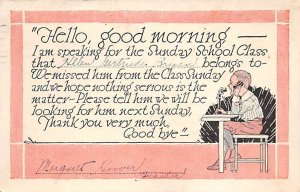 "Hello, good morning —
I am speaking for the Sunday School Class
that Allen Gertrude belongs to—
We missed him from the Class Sunday
and we hope nothing serious is the
matter—Please tell him we will be
looking for him next Sunday,
Thank you very much
Good bye"